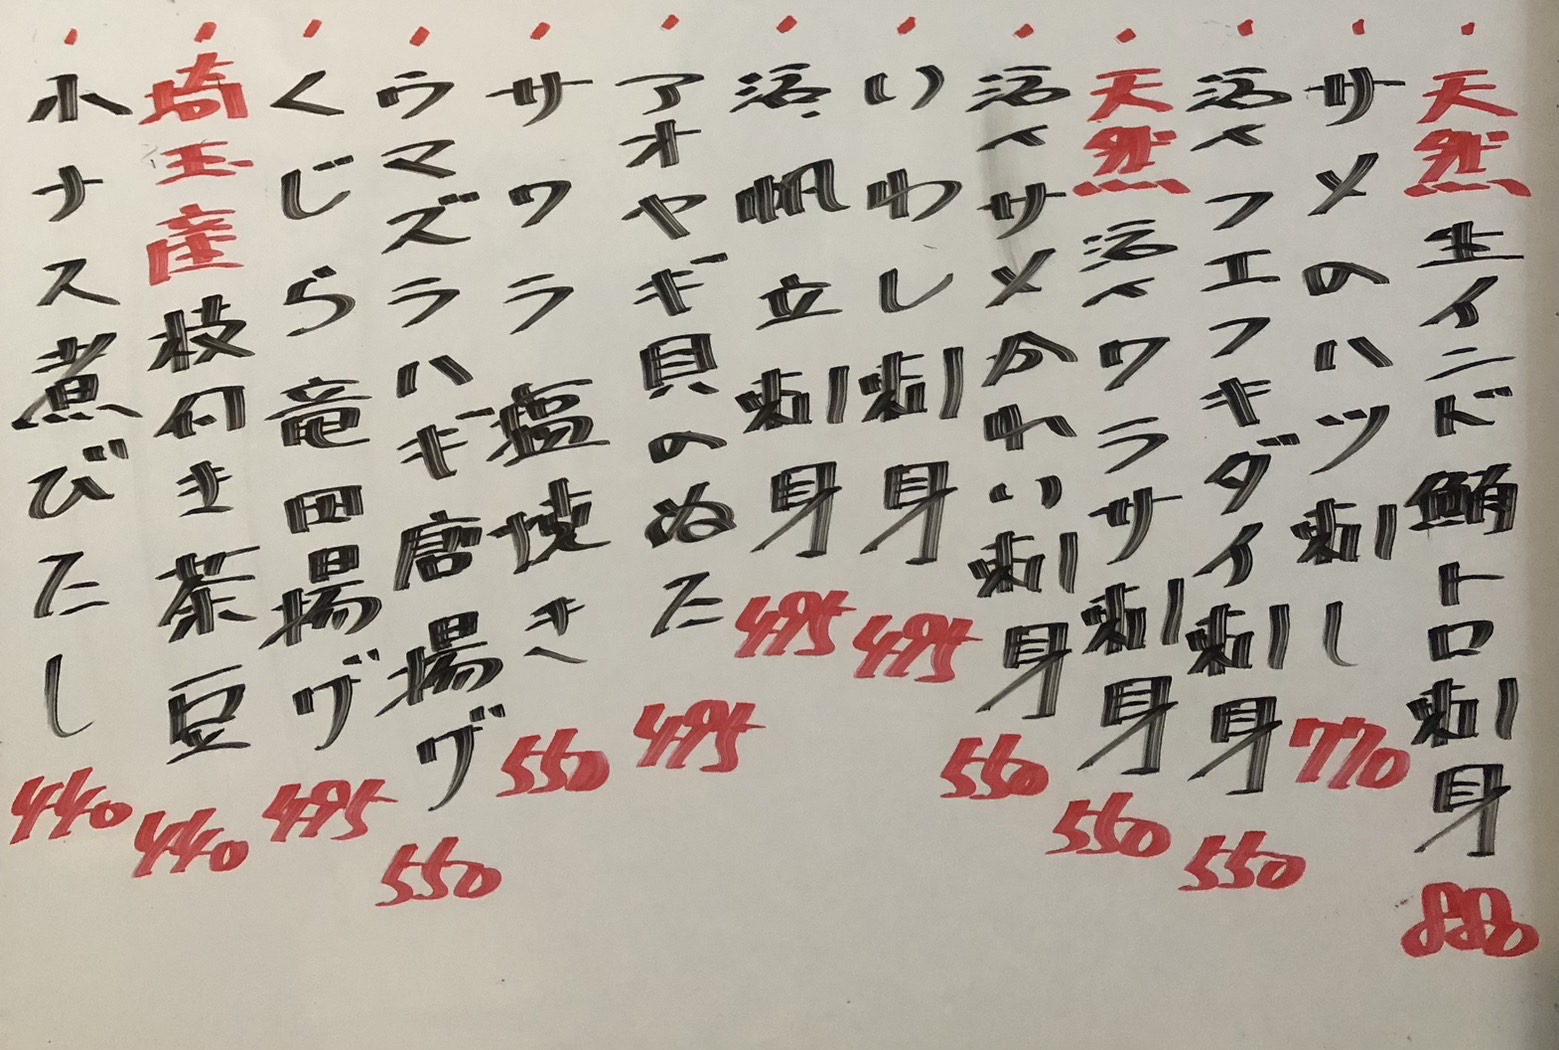 天然生インド鮪トロ刺身 880
サメのハツ刺し 770
活〆フエフキダイ刺身 550
天然活〆ワラサ刺身 550
活〆サメかれい刺身 550
いわし刺身 495
活帆立刺身 495
アオヤギ貝のぬた 495
サワラ塩焼き 550
ウマズラハギ唐揚げ 550
くじら竜田揚げ 495
埼玉産枝付き茶豆 440
小ナス煮びたし 440